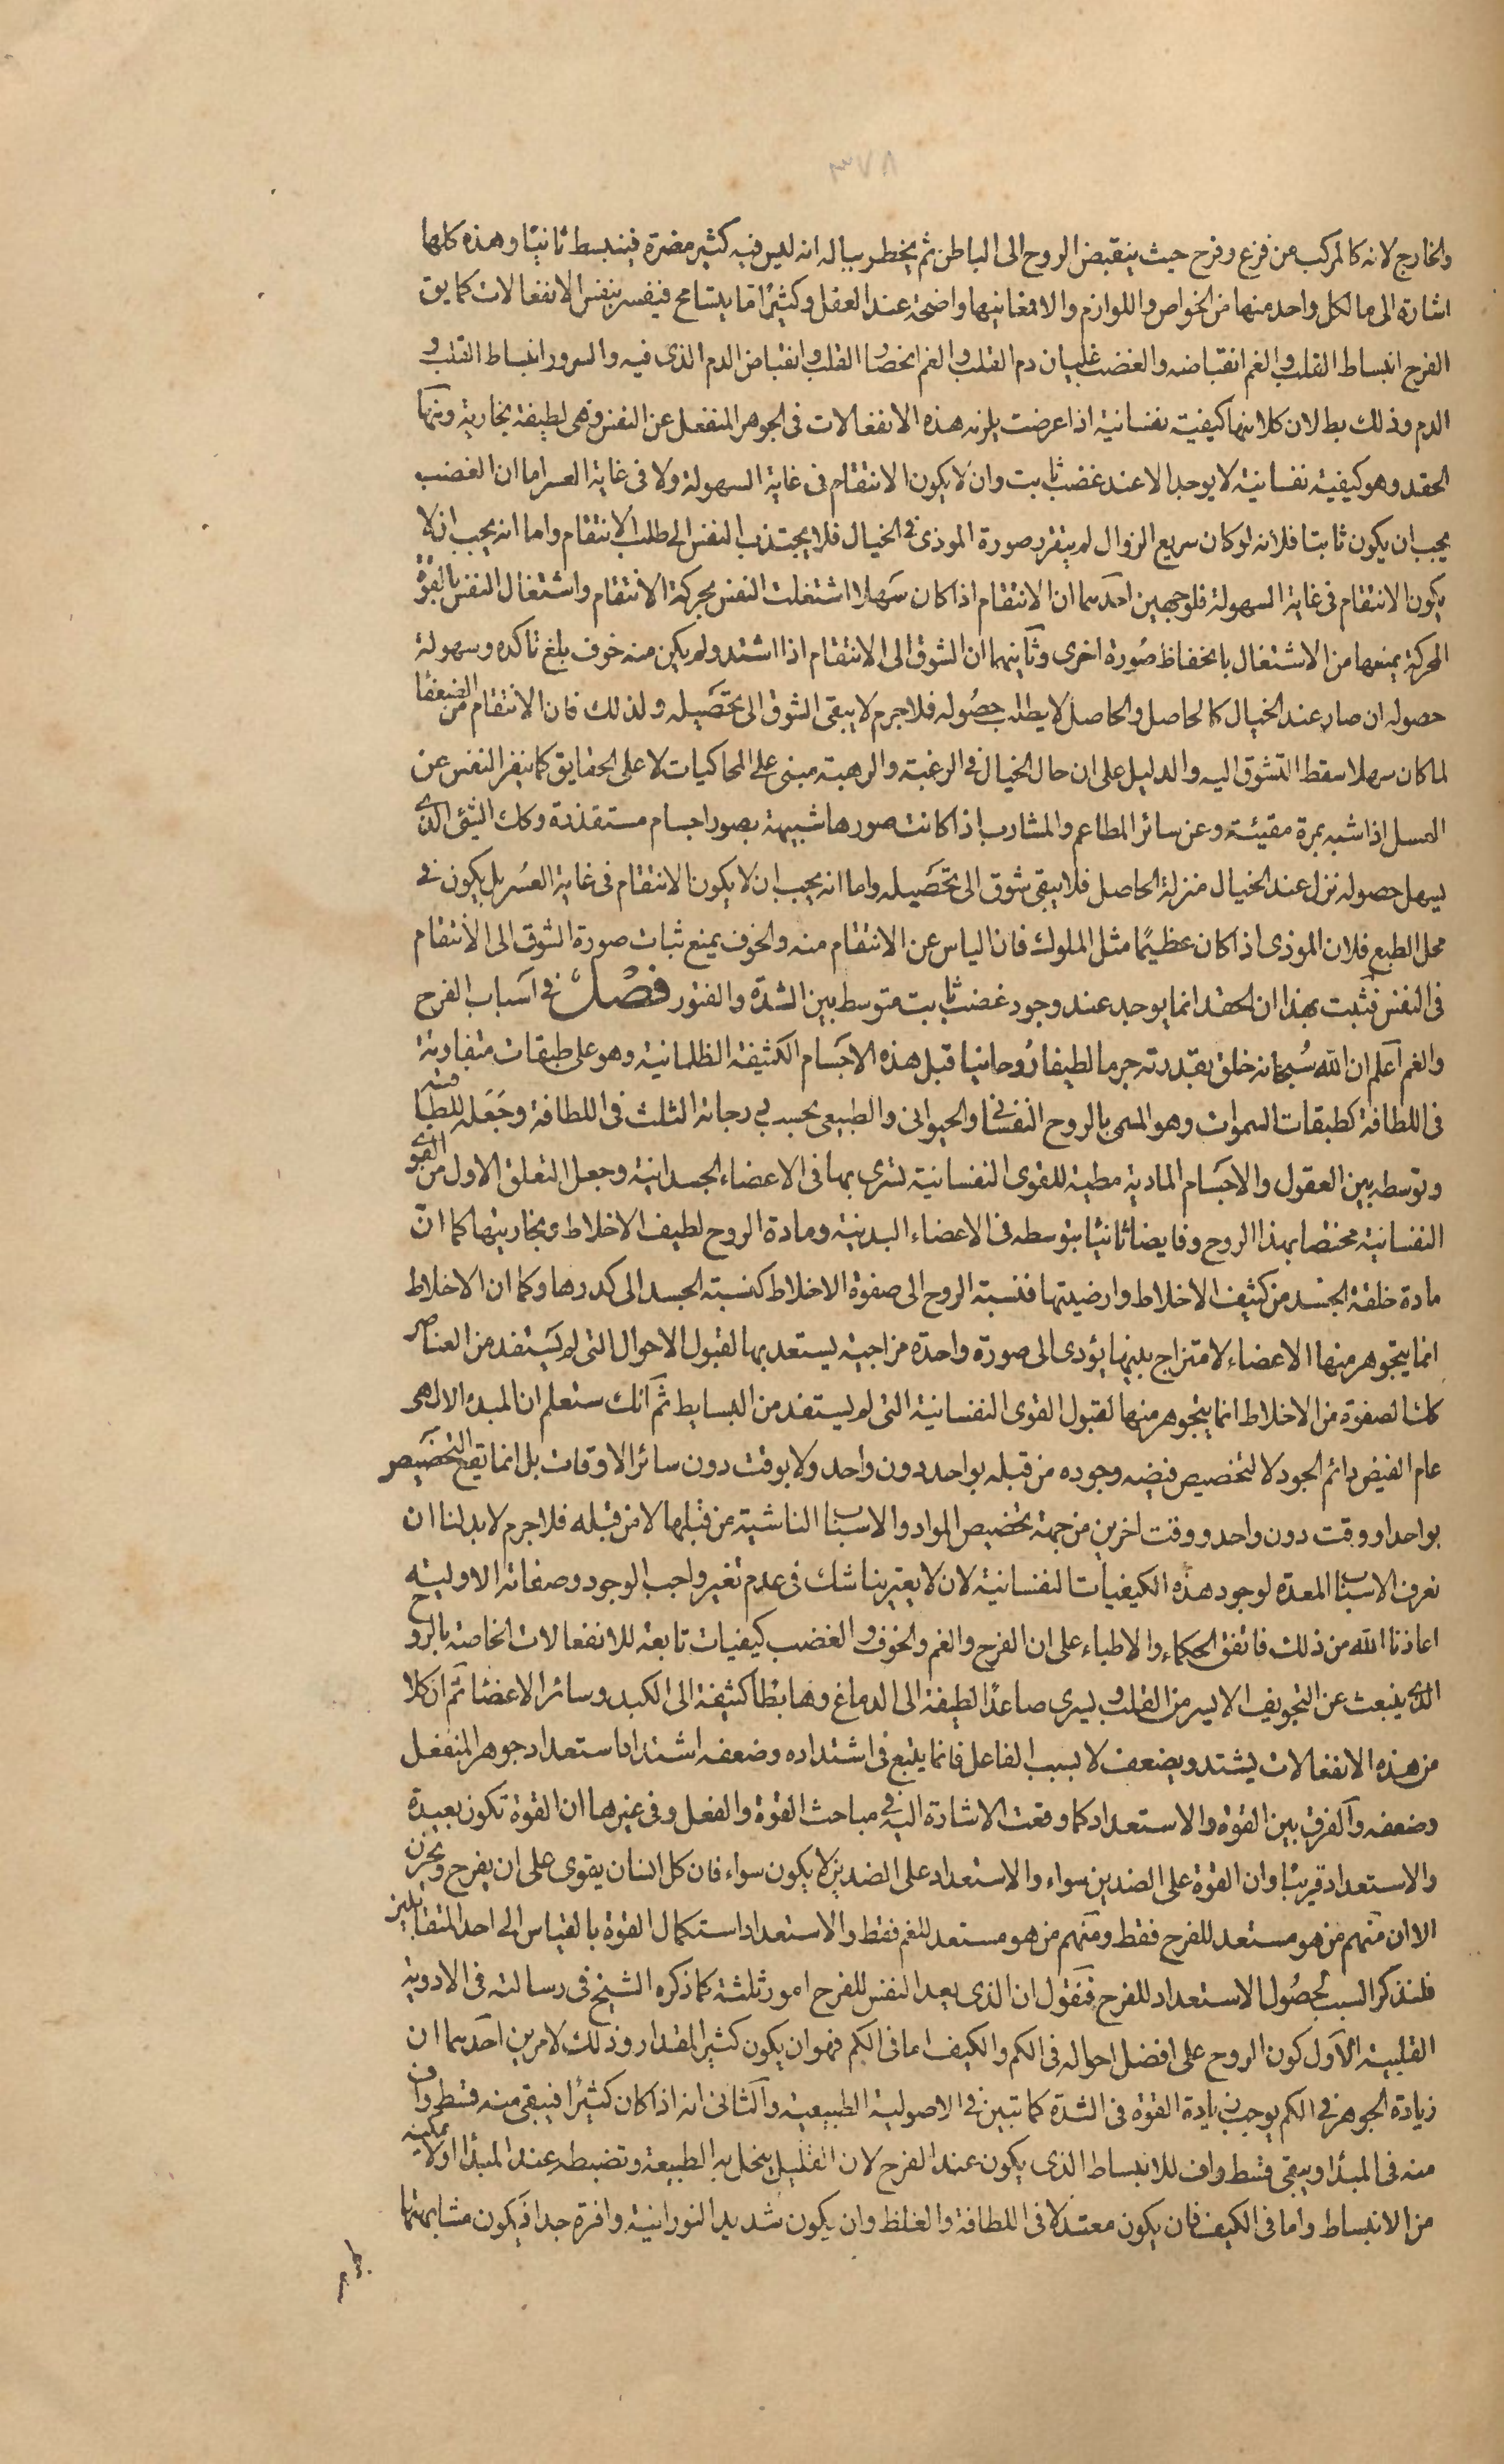 ٣٧٨
والخارج لانه كالمركب من فزع وفرح حيث ينقبض الروح الى الباطن ثم يخطر بباله انه ليس فيه كثير مضرة فينبسط ثانيا وهذه كلها
اشارة الى ما لكل واحد منها من الخواص واللوازم والا فمعانيها واضحة عند العقل وكثيرًا ما يتسامح فيفسر بنفس الانفعالات كما يق
الفرح انبساط القلب والغم انقباضه والغضب غليان دم القلب والغم انحصار القلب وانقباض الدم الذى فيه والسرور انبساط القلب و
الدم وذلك بطلان كلا منها كيفية نفسانية اذا عرضت يلزمه هذه الانفعالات فى الجوهر المنفعل عن النفس وهى لطيفة بخارية ومنها
الحقد وهو كيفية نفسانية لا يوجد الا عند غضب ثابت وان لا يكون الانتقام فى غاية السهولة ولا فى غاية العسر اما ان الغضب
يجب ان يكون ثابتا فلانه لو كان سريع الزوال لم يتقرر صورة الموذى فى الخيال فلا يجتذب النفس الى طلب الانتقام واما انه يجب ان لا
يكون الانتقام فى غاية السهولة فلوجهين احدهما ان الانتقام اذا كان سهلا اشتغلت النفس بحركة الانتقام واشتغال النفس بالقوة
المحركة يمنعها من الاشتغال بانحفاظ صورة اخرى وثانيهما ان الشوق الى الانتقام اذا اشتد ولم يكن منه خوف بلغ تاكده وسهولة
حصوله ان صار عند الخيال كالحاصل والحاصل لا يطلب حصوله فلا جرم لا يبقى الشوق الى تحصيله ولذلك فان الانتقام من الضعفا
لما كان سهلا سقط التشوق اليه والدليل على ان حال الخيال فى الرغبة والرهبة مبنى على المحاكيات لا على الحقايق كما ينفر النفس عن
العسل اذا شبه بمرة مقيئة وعن سائر المطاعم والمشارب اذا كانت صورها شبيهة بصور اجسام مستقذرة وكك الشئ الذى
يسهل حصوله نزل عند الخيال منزلة الحاصل فلا يبقى شوق الى تحصيله واما انه يجب ان لا يكون الانتقام فى غاية العسر بل يكون فى
محل الطبع فلان الموذى اذا كان عظيمًا مثل الملوك فان الياس عن الانتقام منه والخوف يمنع ثبات صورة الشوق الى الانتقام
فى النفس فثبت بهذا ان الحقد انما يوجد عند وجود غضب ثابت متوسط بين الشدة والفتور فصل فى اسباب الفرح
والغم اعلم ان الله سبحانه خلق بقدرته جرما لطيفا روحانيا قبل هذه الاجسام الكثيفة الظلمانية وهو على طبقات متفاوتة
فى اللطافة كطبقات السموات وهو المسمى بالروح النفسانى والحيوانى والطبيعى بحسب درجاته الثلث فى اللطافة وجعله للطافته
وتوسطه بين العقول والاجسام المادية مطية للقوى النفسانية تسرى بها فى الاعضاء الجسدانية وجعل التعلق الاول من القوى
النفسانية مختصا بهذا الروح وفايضا ثانيا بتوسطه فى الاعضاء البدنية ومادة الروح لطيف الاخلاط وبخاريتها كما انّ
مادة خلقة الجسد من كثيف الاخلاط وارضيتها فنسبة الروح الى صفوة الاخلاط كنسبة الجسد الى كدرها وكما ان الاخلاط
انما يتجوهر منها الاعضاء لامتزاج بينها يؤدى الى صورة واحدة مزاجية يستعد بها لقبول الاحوال التى لم يستفد من العناصر
كك الصفوة من الاخلاط انما يتجوهر منها لقبول القوى النفسانية التى لم يستفد من البسايط ثم انك ستعلم ان المبدء الالهى
عام الفيض دائم الجود لا لتخصيص فيضه وجوده من قبله بواحد دون واحد ولا بوقت دون سائر الاوقات بل انما يقع التخصيص
بواحد او وقت دون واحد ووقت اخرين من جهة تخصيص المواد والاسباب الناشية من قبلها لا من قبله فلا جرم لا بد لنا ان
نعرف الاسباب المعدة لوجود هذه الكيفيات النفسانية لان لا يعترينا شك فى عدم تغير واجب الوجود وصفاته الاولية
اعاذنا الله من ذلك فاتفق الحكماء والاطباء على ان الفرح والغم والخوف والغضب كيفيات تابعة للانفعالات الخاصة بالروح
الذى ينبعث عن التجويف الايسر من القلب ويسرى صاعدًا لطيفة الى الدماغ وهابطا كثيفة الى الكبد وسائر الاعضاء ثم ان كلا
من هذه الانفعالات يشتد ويضعف لا بسبب الفاعل فانما يتبع فى اشتداده وضعفه اشتداد استعداد جوهر المنفعل
وضعفه والفرق بين القوة والاستعداد كما وقعت الاشارة اليه فى مباحث القوة والفعل وفى غيرها ان القوة تكون بعيدة
والاستعداد قريبًا وان القوة على الضدين سواء والاستعداد على الضدين لا يكون سواء فان كل انسان يقوى على ان يفرح ويحزن
الا ان منهم من هو مستعد للفرح فقط ومنهم من هو مستعد للغم فقط والاستعداد استكمال القوة بالقياس الى احد المتقابلين
فلنذكر السبب لحصول الاستعداد للفرح فنقول ان الذى يعد النفس للفرح امور ثلثة كما ذكره الشيخ فى رسالته فى الادوية
القلبية الاول كون الروح على افضل احواله فى الكم والكيف اما فى الكم فهو ان يكون كثير المقدار وذلك لامرين احدهما ان
زيادة الجوهر فى الكم يوجب زيادة القوة فى الشدة كما تبين فى الاصولية الطبيعية والثانى انه اذا كان كثيرًا فيبقى منه قسط واف
منه فى المبدا ويبقى قسط واف للانبساط الذى يكون عند الفرح لان القليل يبخل به الطبيعة وتضبطه عند المبدا ولا يمكنه
من الانبساط واما فى الكيف فان يكون معتدلا فى اللطافة والغلظ وان يكون شديد النورانية وافرة جدا فيكون مشابهتها